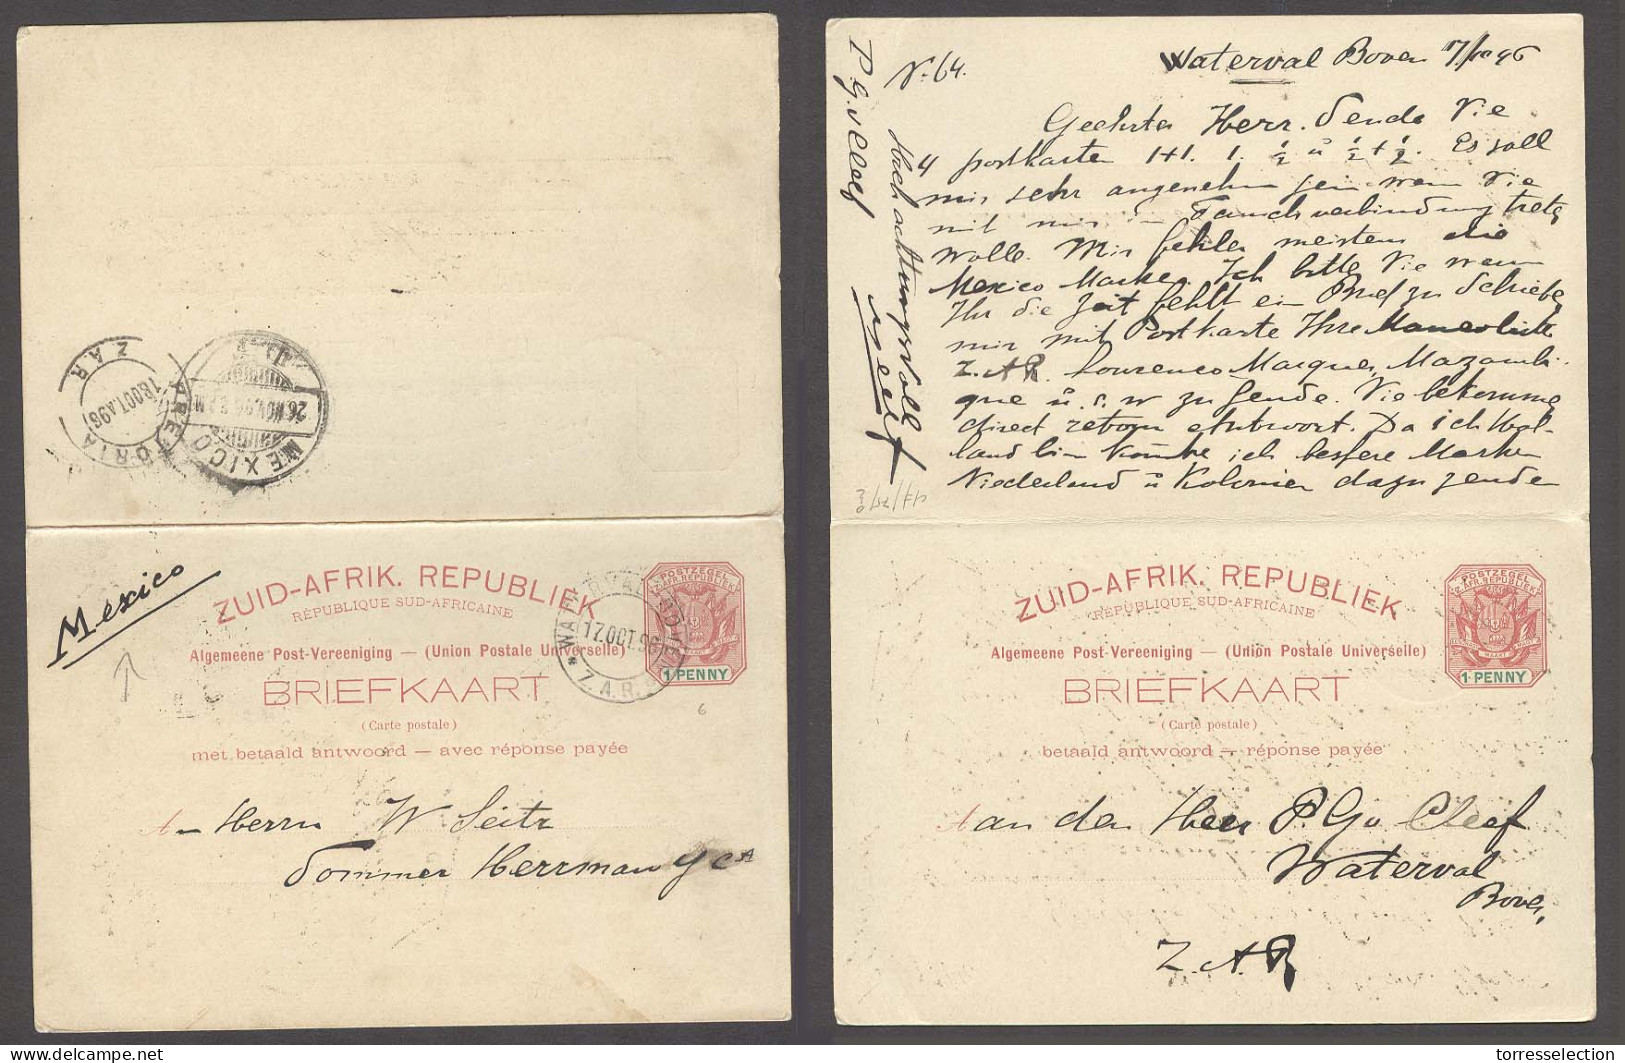 ZAR
PRETORIA
18OCT.A96
MEXICO
26 NOV. 96
Mexico
ZUID-AFRIK. REPUBLIEK
RÉPUBLIQUE SUD-AFRICAINE
Algemeene Post-Vereeniging — (Union Postale Universelle)
BRIEFKAART
(Carte postale)
met betaald antwoord — avec réponse payée
POSTZEGEL
Z. AFR. REPUBLIEK
1 PENNY
17.OCT.96
Z.A.R.
6
An Herrn W Seitz
Sommer Herrman y Ca
Waterval Boven 17/10 96
N. 64.
Geehrter Herr. Sende Sie
4 postkarte 1+1. 1. ½ u ½+½. Es soll
mir sehr angenehm sein wen Sie
mit mir in Tausch verbindung trete
wolle. Mir fehlen meistens die
Mexico Marke. Ich bitte Sie wenn
Ihr die Zeit fehlt ein Brief zu Schriebe
mir mit Postkarte Ihre
Z.AR. Lourenco Marques, Mozambi-
que u. s. w zu sende. Sie bekomme
direct retour Antwort. Da ich Hol-
land bin könnte ich bessere Marken
Niederland u Kolonien dazu sende
Hochachtungsvoll
P.G.v Cleef
ZUID-AFRIK. REPUBLIEK
RÉPUBLIQUE SUD-AFRICAINE
Algemeene Post-Vereeniging — (Union Postale Universelle)
BRIEFKAART
(Carte postale)
betaald antwoord — réponse payée
POSTZEGEL
Z. AFR. REPUBLIEK
1 PENNY
Aan den Heer P.G.v Cleef
Waterval
Boven,
Z.A.R
delcampe.net
torresselection